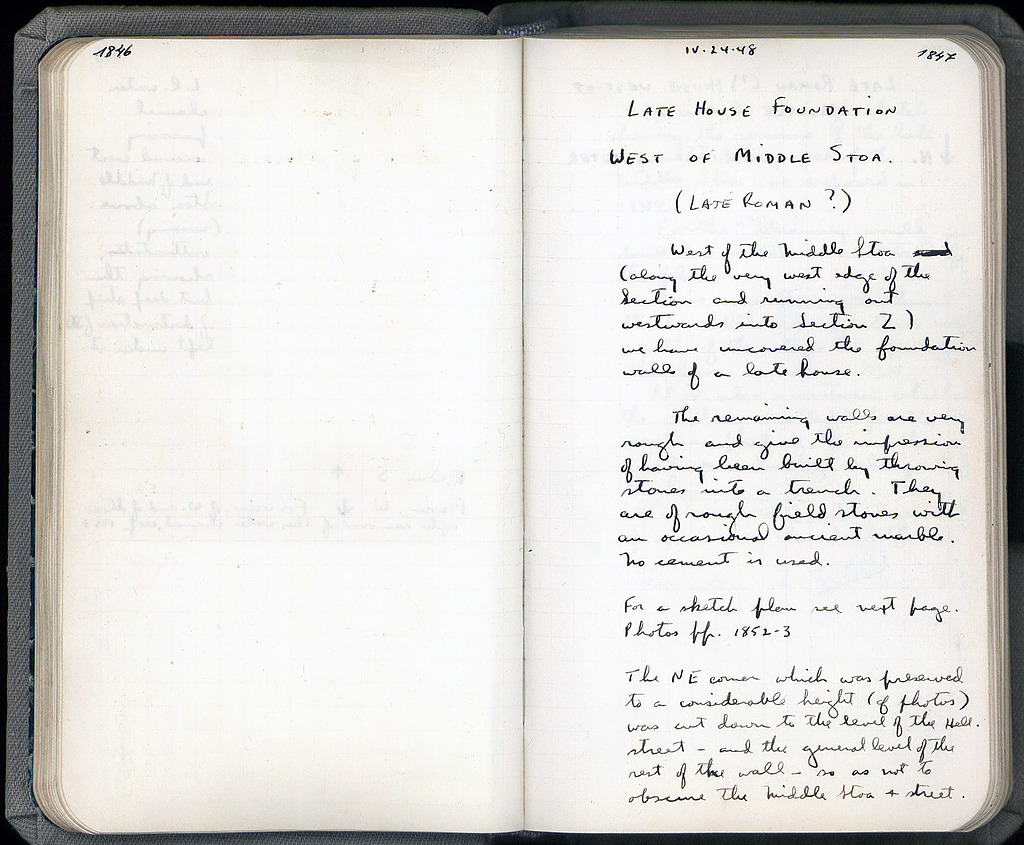 1846
IV.24.48
1847
LATE HOUSE FOUNDATION
WEST OF MIDDLE STOA.
(LATE ROMAN ?)
West of the Middle Stoa
(along the very west edge of the
Section and running out
westwards into Section Z)
we have uncovered the foundation
walls of a late house.
The remaining walls are very
rough and give the impression
of having been built by throwing
stones into a trench. They
are of rough field stones with
an occasional ancient marble.
No cement is used.
For a sketch plan see next page.
Photos pp. 1852-3
The NE corner which was preserved
to a considerable height (cf photos)
was cut down to the level of the Hell.
street - and the general level of the
rest of the wall - so as not to
obscure the Middle Stoa + street.